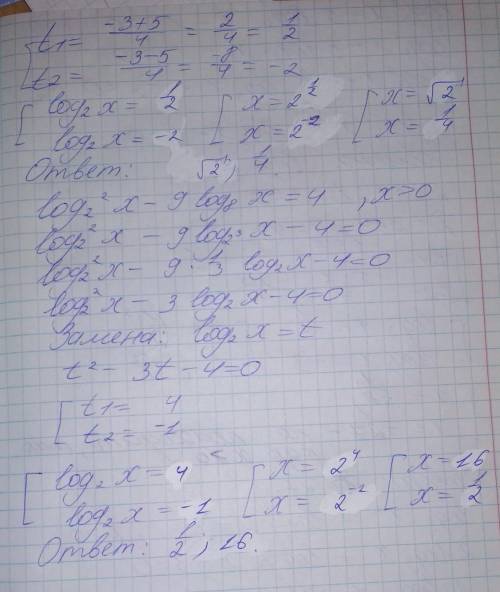 t1 = (-3+5)/4 = 2/4 = 1/2
t2 = (-3-5)/4 = -8/4 = -2
[ log₂ x = 1/2 [ x = 2^(1/2) [ x = √2
log₂ x = -2 x = 2^(-2) x = 1/4
Ответ: √2; 1/4.
log₂² x - 9 log₈ x = 4 , x>0
log₂² x - 9 log₂³ x - 4 = 0
log₂² x - 9 · 1/3 log₂ x - 4 = 0
log₂² x - 3 log₂ x - 4 = 0
Замена: log₂ x = t
t² - 3t - 4 = 0
[ t1 = 4
t2 = -1
[ log₂ x = 4 [ x = 2⁴ [ x = 16
log₂ x = -1 x = 2⁻¹ x = 1/2
Ответ: 1/2; 16.